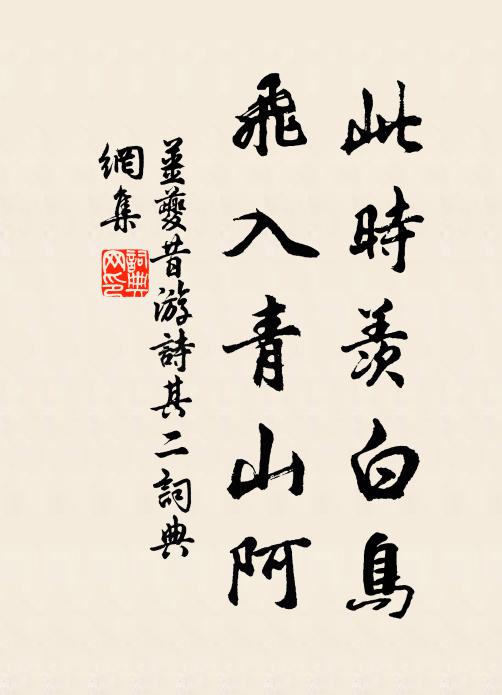 此時羨白鳥
飛入青山阿
姜夔昔游詩其二詞典
網集
詞典
网印